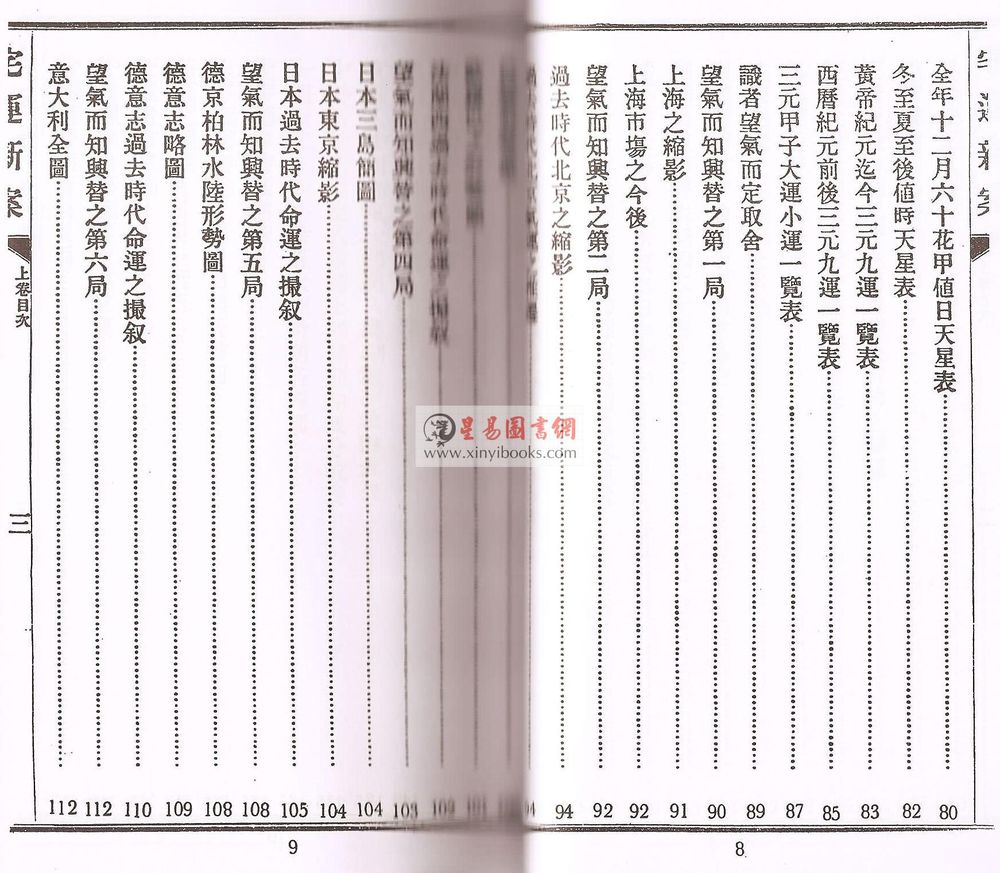 全年十二月六十花甲値日天星表 80
冬至夏至後値時天星表 82
黃帝紀元迄今三元九運一覽表 83
西曆紀元元前後三元九運一覽表 85
三元甲子大運小運一覽表 87
識者望氣而定取舍 89
望氣而知興替之第一局 90
上海之縮影 91
上海市場之今後 92
望氣而知興替之第二局 92
過去時代北京之縮影 94
8
望氣而知興替之第四局 103
日本三島簡圖 104
日本東京縮影 104
日本過去時代命運之撮叙 105
望氣而知興替之第五局 108
德京柏林水陸形勢圖 108
德意志略圖 109
德意志過去時代命運之撮叙 110
望氣而知興替之第六局 112
意大利全圖 112
宅運新案
上卷目次
三
9
星易圖書網
www.xinyibooks.com